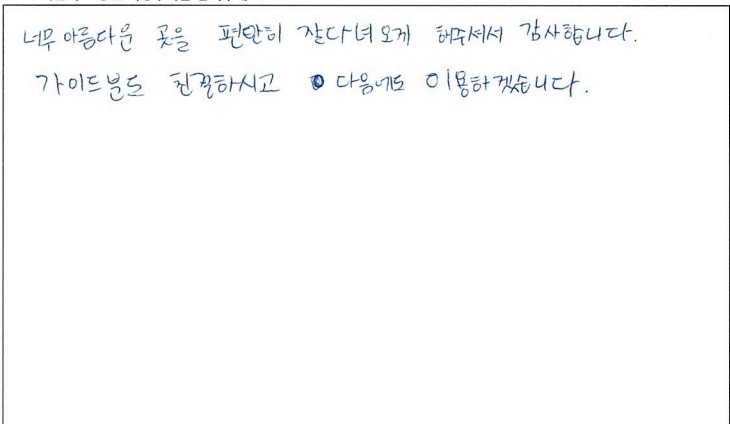 너무 아름다운 곳을 편안히 잘다녀오게 해주셔서 감사합니다.
가이드분도 친절하시고 다음에도 이용하겠습니다.